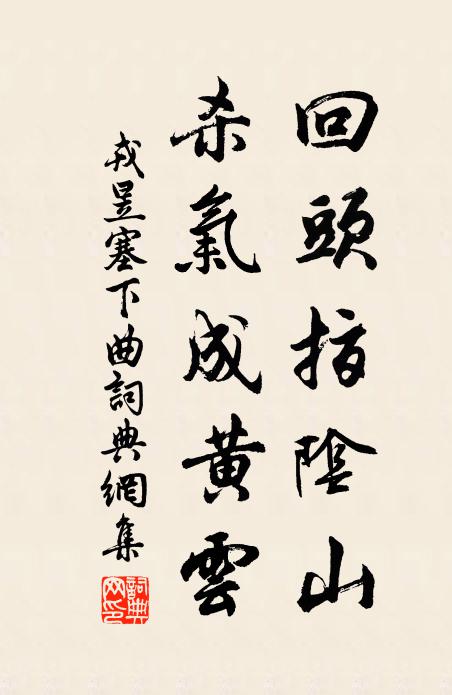 回頭指陰山
杀氣成黄雲
戎昱塞下曲詞典網集
詞典網印